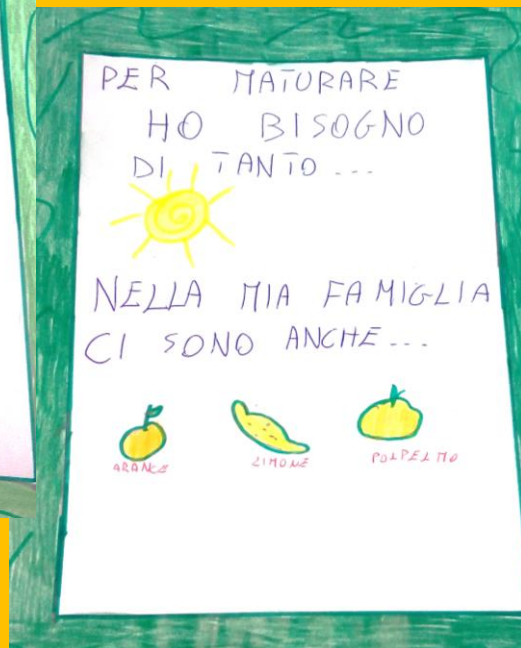 PER MATURARE
HO BISOGNO
DI TANTO...
NELLA MIA FAMIGLIA
CI SONO ANCHE...
ARANCE LIMONE POLPELMO